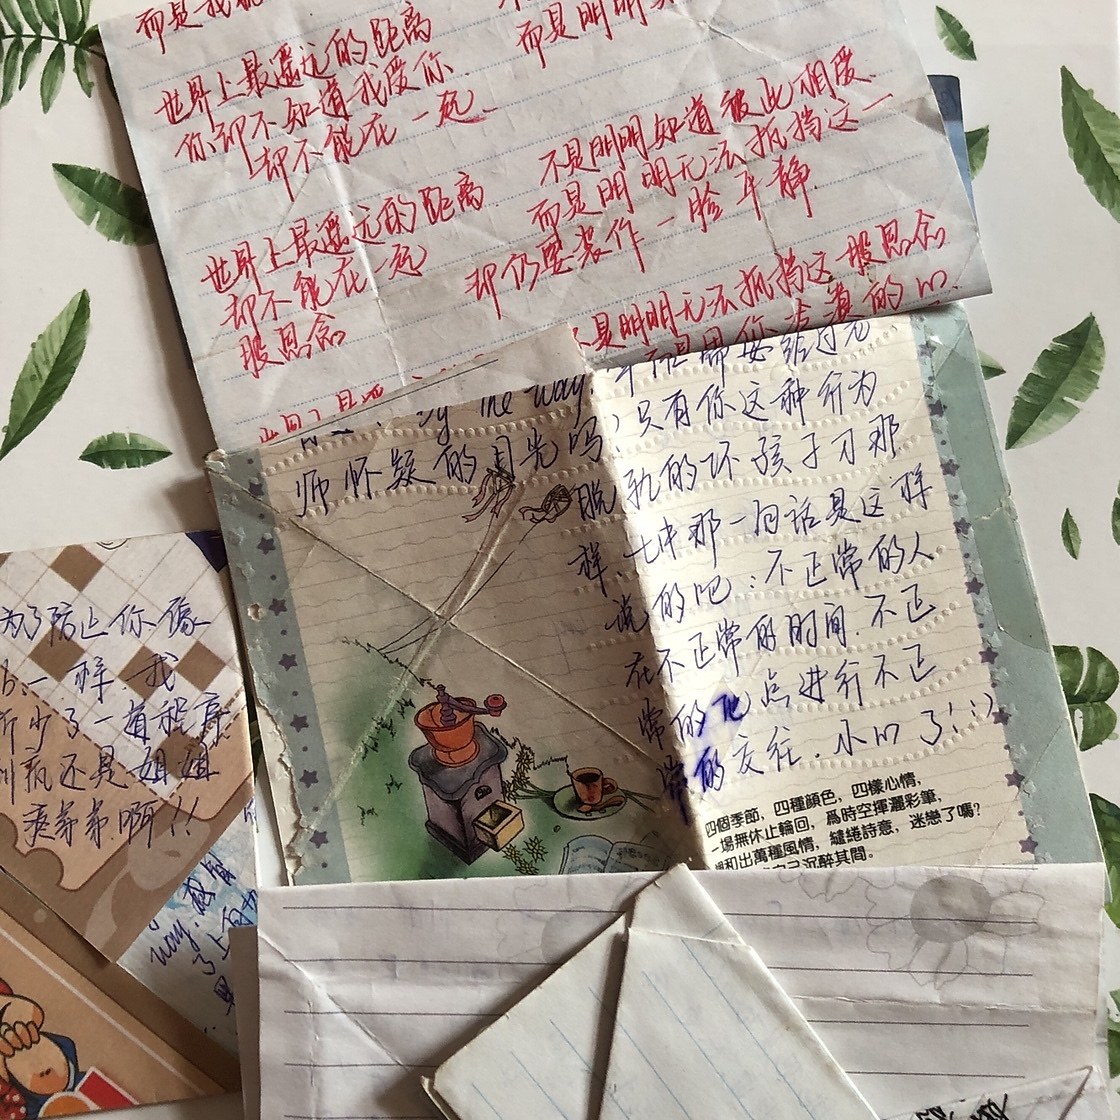 而是我
世界上最遥远的距离
你却不知道我爱你
却不能在一起
而是明明
世界上最遥远的距离
却不能在一起
股思念
不是明明知道彼此相爱
而是明明无法抵挡这一
却仍要装作一脸平静
不是明明无法抵挡这一股思念
By the way.
师怀疑的目光吗?只有你这种行为
脱轨的坏孩子才那
样、七中那一句话是这样
说的吧:不正常的人
在不正常的时间.不正
常的地点进行不正
常的交往.小心了!:)
四個季節,四種顔色,四樣心情,
一場無休止輪回,爲時空揮灑彩筆,
和出萬種風情,繾綣詩意,迷戀了嗎?
沉醉其間。
为了防止你像
一样.我
少了一道程序
还是姐姐
弟弟啊!!
way.
了上